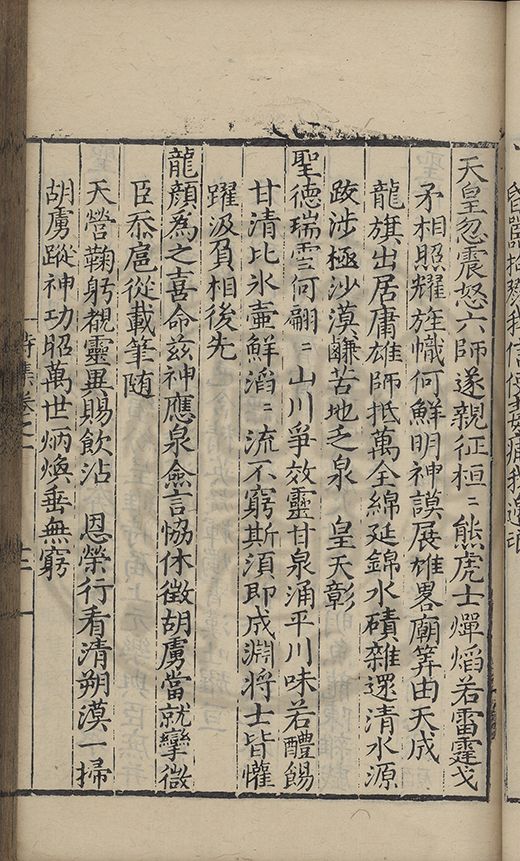 天皇忽震怒六師遂親征桓〻熊虎士燀焰若雷霆戈
矛相照耀旌幟何鮮明神謨展雄畧廟筭由天成
龍旗出居庸雄師抵萬全綿延錦水磧雜遝清水源
跋涉極沙漠鹻苦地乏泉　皇天彰
聖德瑞雲何翩〻山川爭效靈甘泉涌平川味若醴餳
甘清比氷壺鮮滔〻流不窮斯須即成淵將士皆懽
躍汲負相後先
龍顔為之喜命茲神應泉僉言協休徵胡虜當就孿微
臣忝扈從載筆随
天營鞠躬覩靈異賜飲沾　恩榮行看清朔漠一掃
胡虜蹤神功昭萬世炳煥垂無窮
詩集卷之一